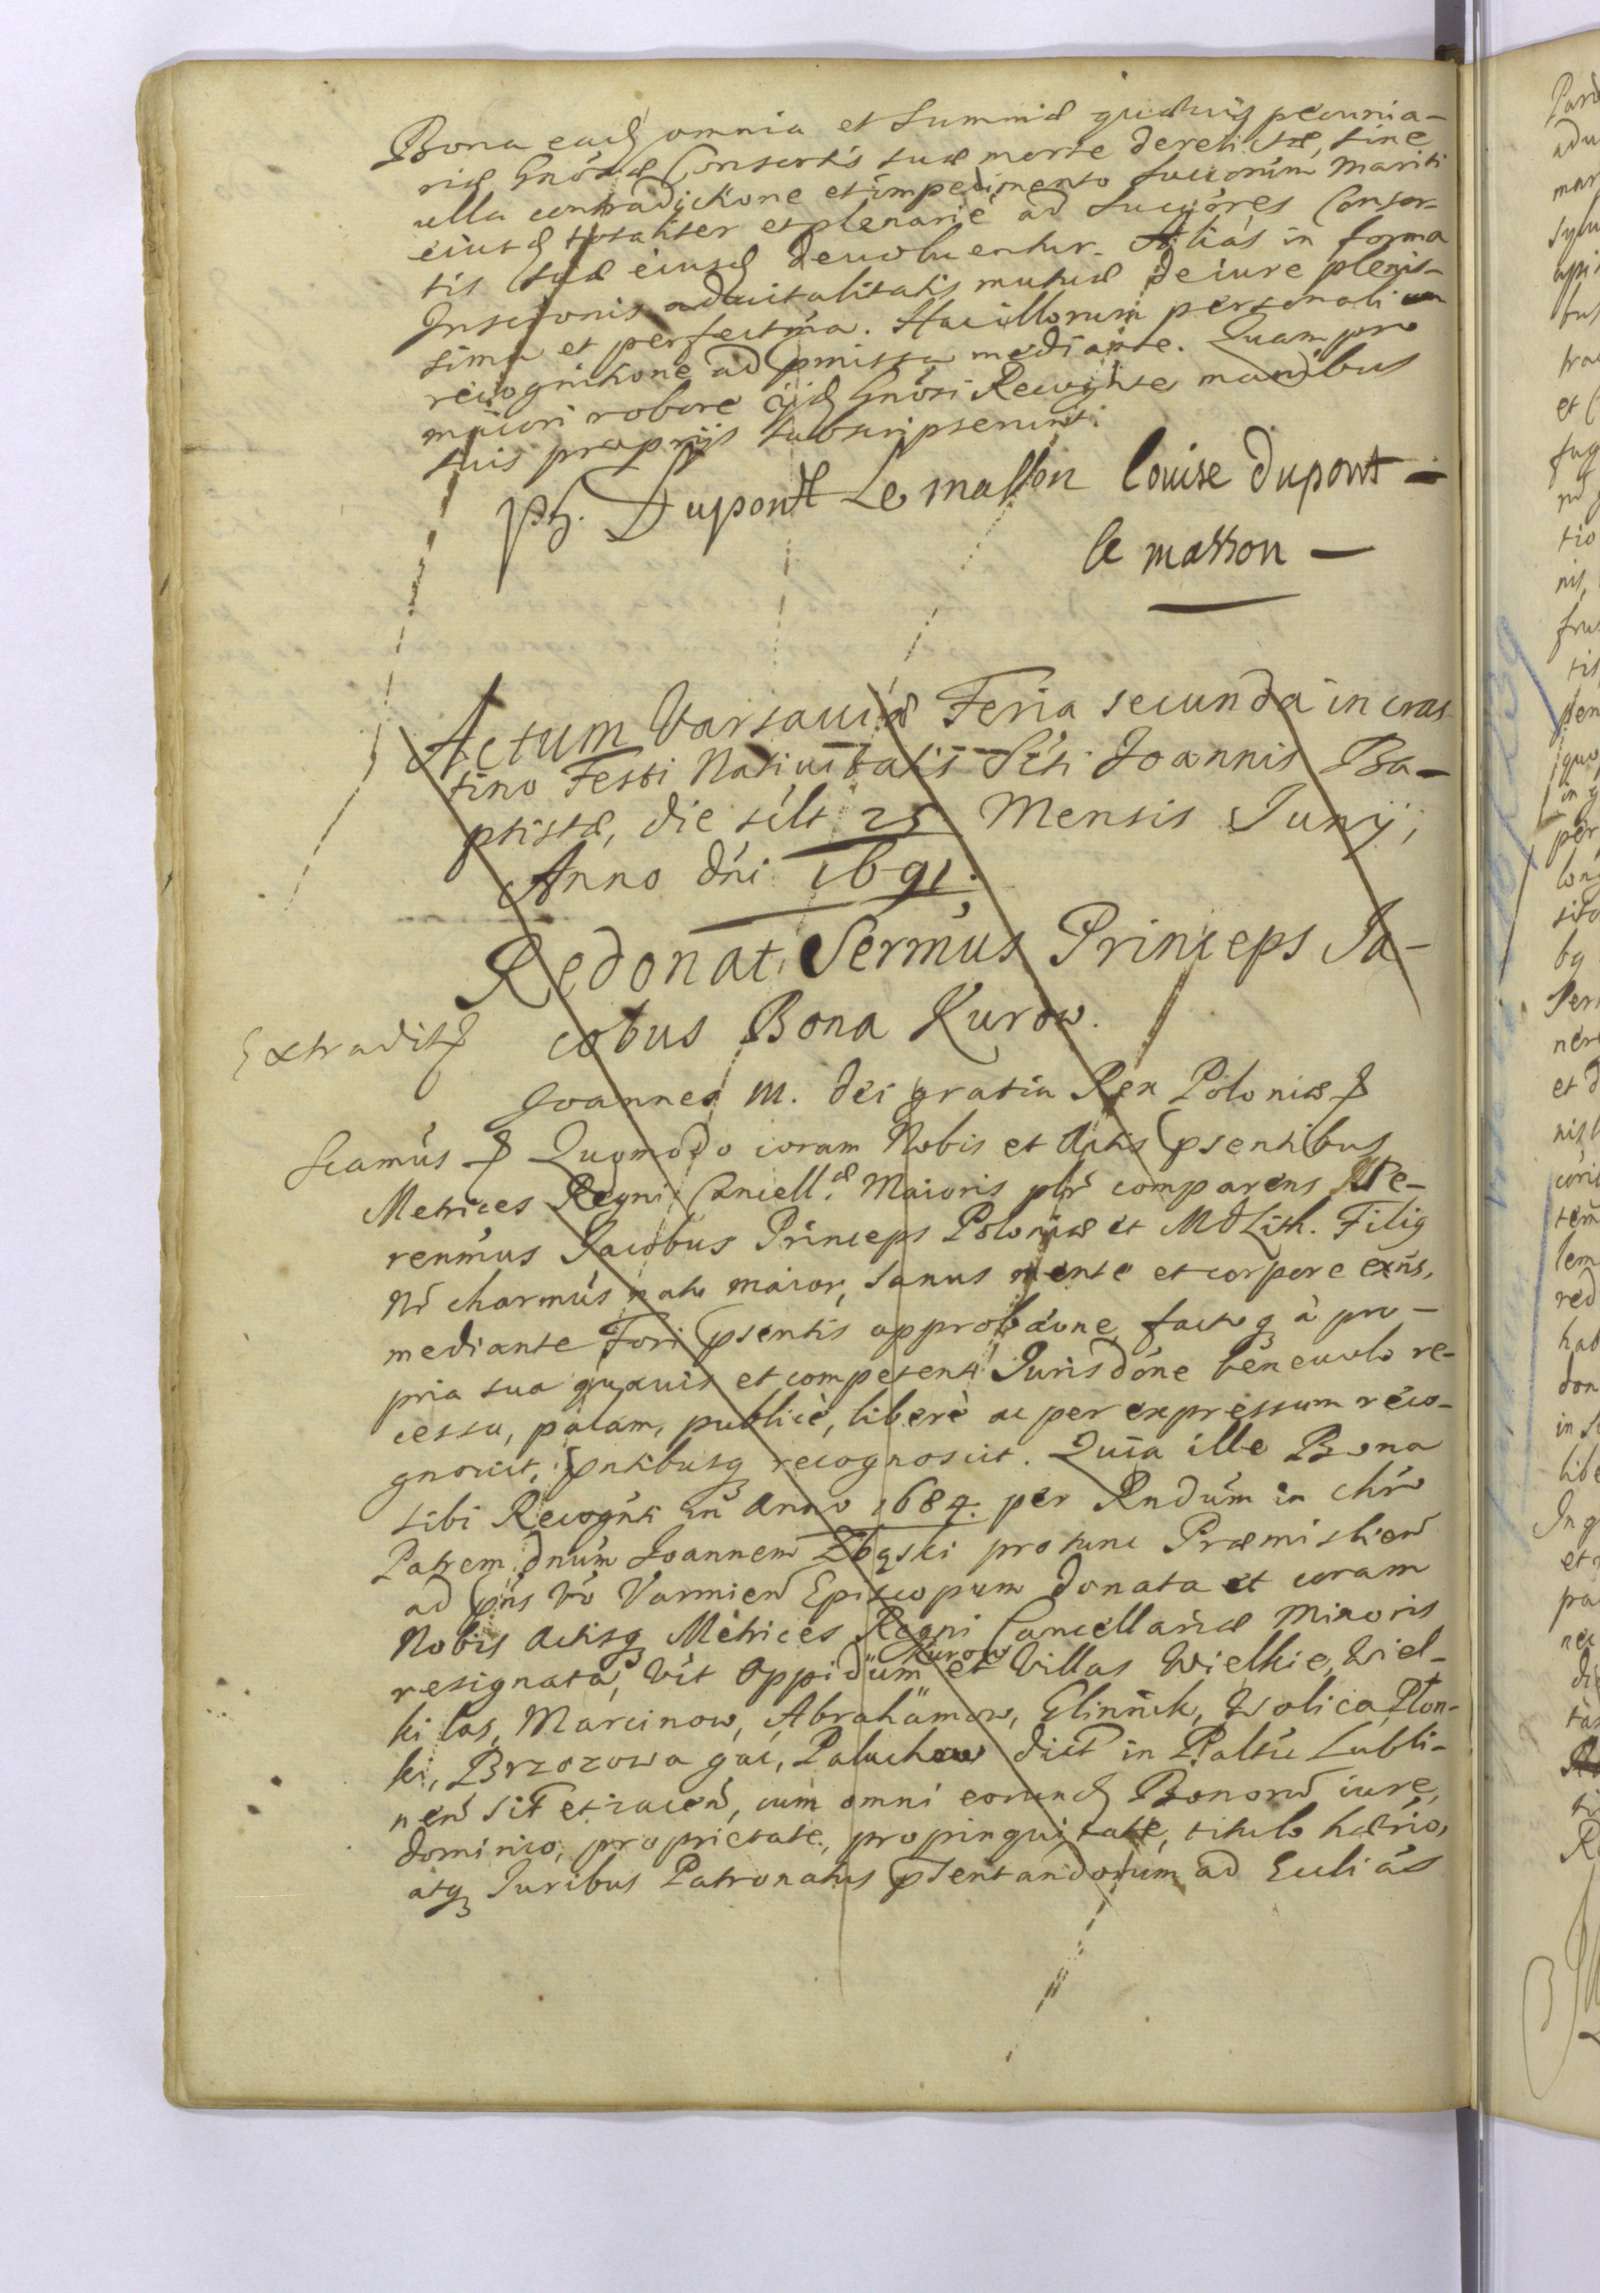 Bona ead omnia et Summæ quævis pecunia-
riæ Gnosæ Consortis suæ morte derelictæ, sine
ulla contradictione et impedimento succorum Mariti
eiusd totaliter et plenarie ad Succores Consor-
tis suæ eiusd devoluentur. Alias in forma
Inscronis advitalitatis mutuæ de iure plenis-
sima et perfectma. Hac illorum personali
recognitione ad pmissa mediante. Quam pro
maiori robore iid Gnosi Recogntes manibus
suis proprijs subscripserunt.
Ph. Dupont Le masson louise dupont -
le masson -
Actum Varsaviæ Feria secunda in cras-
tino Festi Nativitatis Scti Joannis Ba-
ptistæ, die silt 25 Mensis Junij,
Anno dni 1691.
Redonat Sermus Princeps Ja-
cobus Bona Kurow.
Extradit
Joannes III. dei gratia Rex Poloniæ
Scamus Quomodo coram Nobis et Actis psentibus
Metrices Regni Cancell.æ Maioris plr comparens Se-
renmus Jacobus Princeps Poloniæ et MDLith. Filiq
Nr charmus natu maior, sanus mente et corpore exns,
mediante Fori psentis approbaone, factoq à pro-
pria sua quavis et competenti Jurisdone benevolo re-
cessu, palam, publicè, liberè ac per expressum reco-
gnovit, pntibusq recognoscit. Quia ille Bona
sibi Recognti in Anno 1684. per Rndum in chro
Patrem dnum Joannem Zbąski pro tunc Præmislien
ad pns vo Varmien Episcopum donata et coram
Nobis Actisq Metrices Regni Cancellariæ Minoris
resignata, vit Oppidum Kurow et Villas Wielkie, Wiel-
ki las, Marcinow, Abrahamow, Glinnik, Wolica, Płon-
ki, Brzozowa gać, Paluchow dict in Pałtu Lubli-
nen sit et iacen, cum omni eorund Bonorum iure,
dominio, proprietate, propinquitate, titulo hærio,
atq Juribus Patronatus psentandorum ad Ecclias